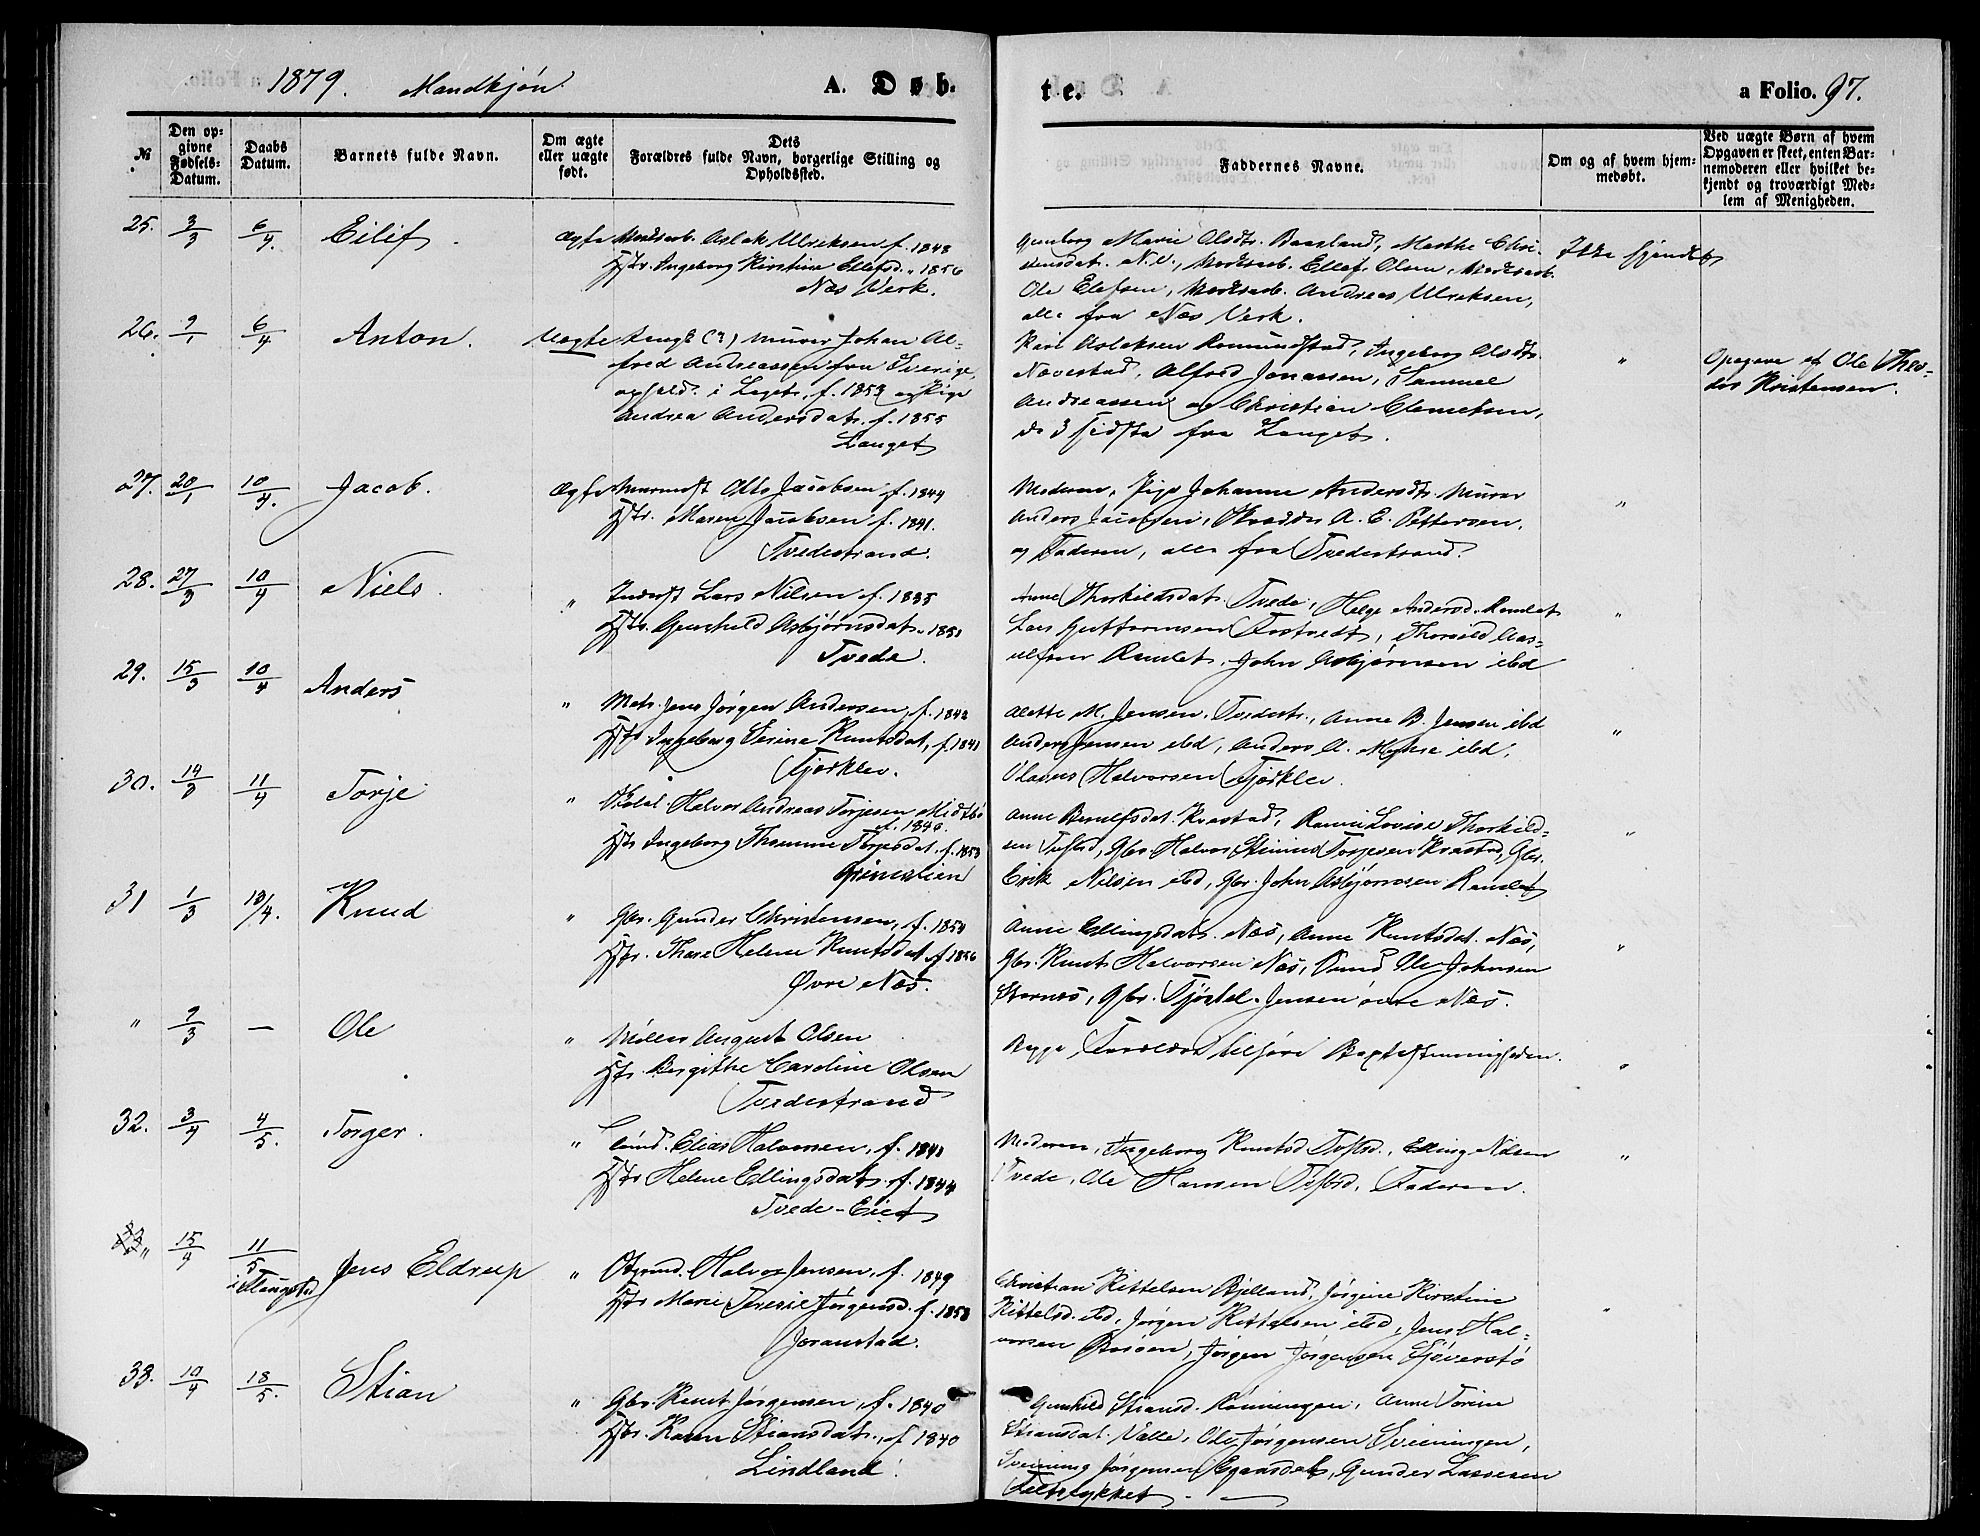 1879. Mandkjøn. A. Døb-
te. a Folio. 97.
№
Den op-
givne
Fødsels-
Datum.
Daabs
Datum.
Barnets fulde Navn.
Om ægte
eller uægte
født.
Dets
Forældres fulde Navn, borgerlige Stilling og
Opholdssted.
Faddernes Navne.
Om og af hvem hjem-
medøbt.
Ved uægte Børn af hvem
Opgaven er skeet, enten Bar-
nemoderen eller hvilket be-
kjendt og troværdigt Med-
lem af Menigheden.
25. 3/3 6/4. Eilif. Ægte
Aslak Ulriksen f. 1848
Hstr. Ingeborg Kirstine Ellefsd. " 1856
Næs Verk.
Gunborg Marie Olsdtr. Baasland, Marthe Chri-
stensdat. N.V., Ellef Olsen,
Ole Elefsen, Andreas Ulriksen,
alle fra Næs Verk.
Ikke hjemdøbt
26. 9/1 6/4 Anton. Uægte
(?) murer Johan Al-
fred Andreassen fra Sverige,
i Laget, f. 1853 og Pige
Andrea Andersdat. f. 1855
Lauget
Kari Aslaksen Romundstad, Ingeborg Olsdtr.
Navestad, Alfred Jonassen, Samuel
Andreassen og Christian Clemetsen,
de 3 sidste fra Lauget.
"
Opgave af Ole Theo-
dor Kristensen.
27. 20/1 10/4. Jacob. Ægte
Otto Jacobsen f. 1844
Hstr. Maren Jacobsen f. 1841.
Tvedestrand.
Moderen, Pige Johanne Andersdt. Murer
Anders Jacobsen, A. E. Pettersen,
og Faderen, alle fra Tvedestrand.
"
28. 27/3 10/4 Niels. "
Inderst Lars Nilsen f. 1835
Hstr. Gunhild Asbjørnsdat. " 1851
Tvede.
Anne Thorkildsdat. Tvede, Helge Andersd. Ramlet
Lars Guttormsen Fostvedt, Ramlet, John Asbjørnsen ibd
"
29. 15/3 10/4 Anders "
Matr. Jens Jørgen Andersen, f. 1842
Hstr Ingeborg Serine Knutsdat, f. 1841
Tjørklev.
Alette M. Jensen, Tvedestr., Anne B. Jensen ibd
Anders Jensen ibd, Anders A. ibd,
Olaves Halvorsen Tjørklev.
"
30. 14/3 11/4 Torje "
Halvor Andreas Torjesen Midtbø
f. 1840.
Hstr Ingeborg Thomine Torjesdat. f. 1853
Anne Kvastad, Lovise Thorkild-
sen Tufted, Gbr. Halvor Torjesen Kvastad, Gbr.
Erik Nilsen ibd, Gbr. John Asbjørnsen Ramlet
"
31 1/3 13/4. Knud "
Gbr. Gunder Christensen, f. 1854
Hstr. Thare Helene Knutsdat. f 1856
Øvre Næs.
Anne Ellingsdat. Næs, Anne Knutsdat. Næs,
Gbr. Knut Halvorsen Næs, Ole Johnsen
Gbr. Tjøstel Jensen øvre Næs.
"
" 9/3 – Ole "
Møller August Olsen
Hstr. Bergithe Caroline Olsen
Tvedestrand
Begge Forældre tilhøre Baptistmenigheden.
"
32. 3/4 4/5. Torger. "
Elias Halvorsen, f. 1841
Hstr Helene Ellingsdat. f. 1844
Tvede-Eiet
Moderen, Ingeborg Knutsd Tufted., Elling Nilsen
Tvede, Ole Hansen Tufted, Faderen.
"
" 15/4 11/5 Jens Eldrup "
Halvor Jensen, f. 1849
Hstr Marie Teresie Jørgensd. f. 1853
Joranstad.
Christian Kittelsen Bjelland, Jørgine Kirstine
Kittelsd. ibd, Jørgen Kittelsen ibd, Jens Hal-
vorsen Jørgen Jørgensen
"
33. 10/4 18/5. Stian "
Gbr. Knut Jørgensen, f. 1840
Hstr. Karen Stiansdat., f 1840
Lindland.
Gunhild Stiansd. Rønningen, Anne Torine
Stiansdat. Valle, Ole Jørgensen Sveiningen,
Jørgensen Gunder Lassesen